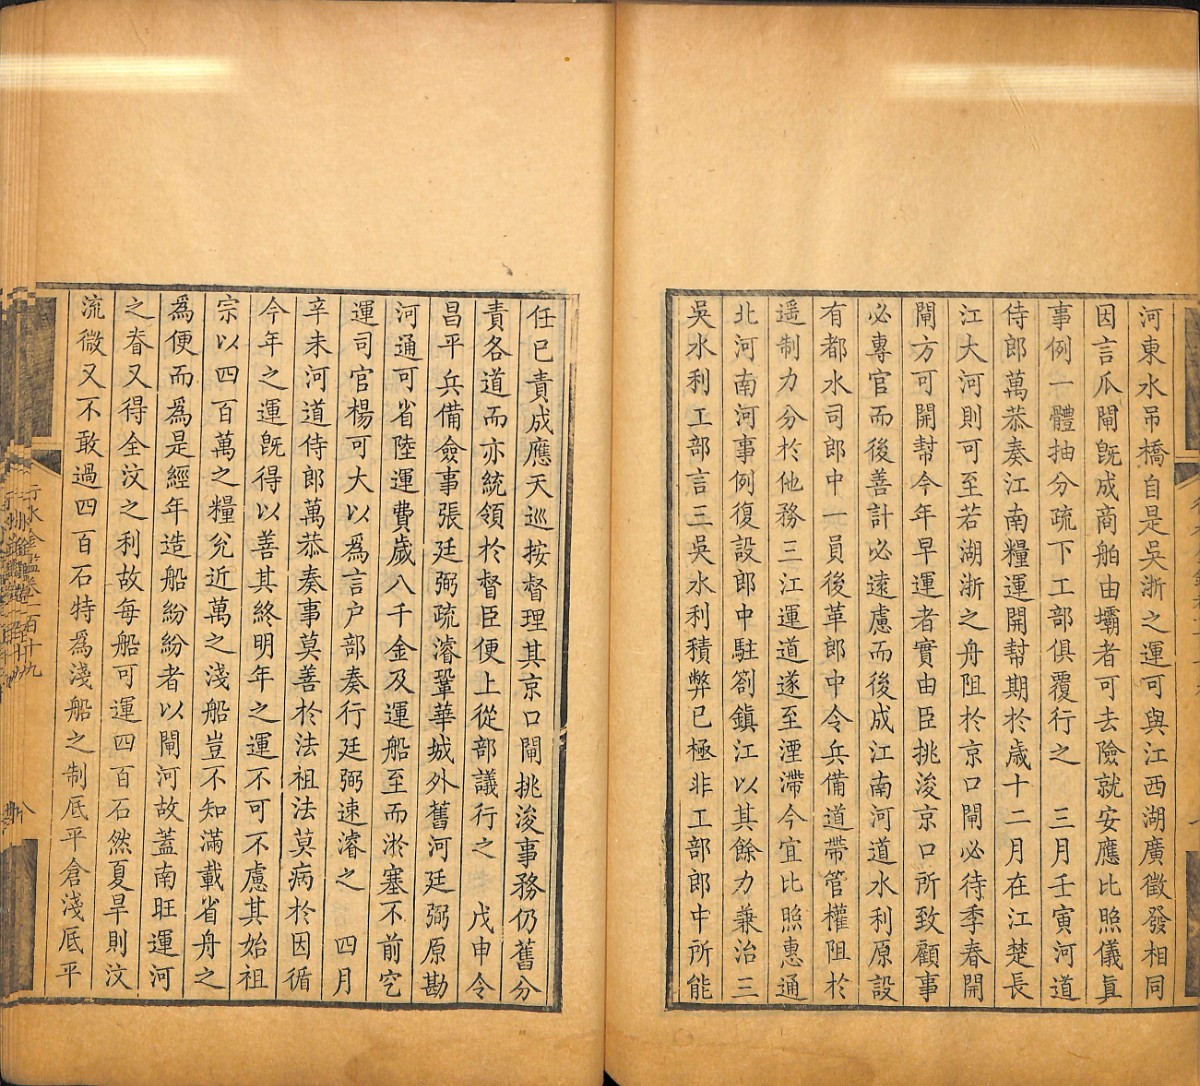 河東水吊橋自是吳浙之運可與江西湖廣徵發相同
因言瓜閘旣成商舶由壩者可去險就安應比照儀真
事例一體抽分疏下工部俱覆行之　三月壬寅河道
侍郎萬恭奏江南糧運開幫期於歲十二月在江楚長
江大河則可至若湖浙之舟阻於京口閘必待季春開
閘方可開幫今年早運者實由臣挑浚京口所致顧事
必專官而後善計必遠慮而後成江南河道水利原設
有都水司郎中一員後革郎中令兵備道帶管權阻於
遥制力分於他務三江運道遂至湮滯今宜比照惠通
北河南河事例復設郎中駐劄鎮江以其餘力兼治三
吳水利工部言三吳水利積弊已極非工部郎中所能
任已責成應天巡按督理其京口閘挑浚事務仍舊分
責各道而亦統領於督臣便上從部議行之　戊申令
昌平兵備僉事張廷弼疏濬鞏華城外舊河廷弼原勘
河通可省陸運費歲八千金及運船至而淤塞不前𫝊
運司官楊可大以爲言户部奏行廷弼速濬之　四月
辛未河道侍郎萬恭奏事莫善於法祖法莫病於因循
今年之運旣得以善其終明年之運不可不慮其始祖
宗以四百萬之糧兊近萬之淺船豈不知滿載省舟之
爲便而爲是經年造船紛紛者以閘河故蓋南旺運河
之脊又得全汶之利故每船可運四百石然夏旱則汶
流微又不敢過四百石特爲淺船之制底平倉淺底平
行水金鑑卷一百十九